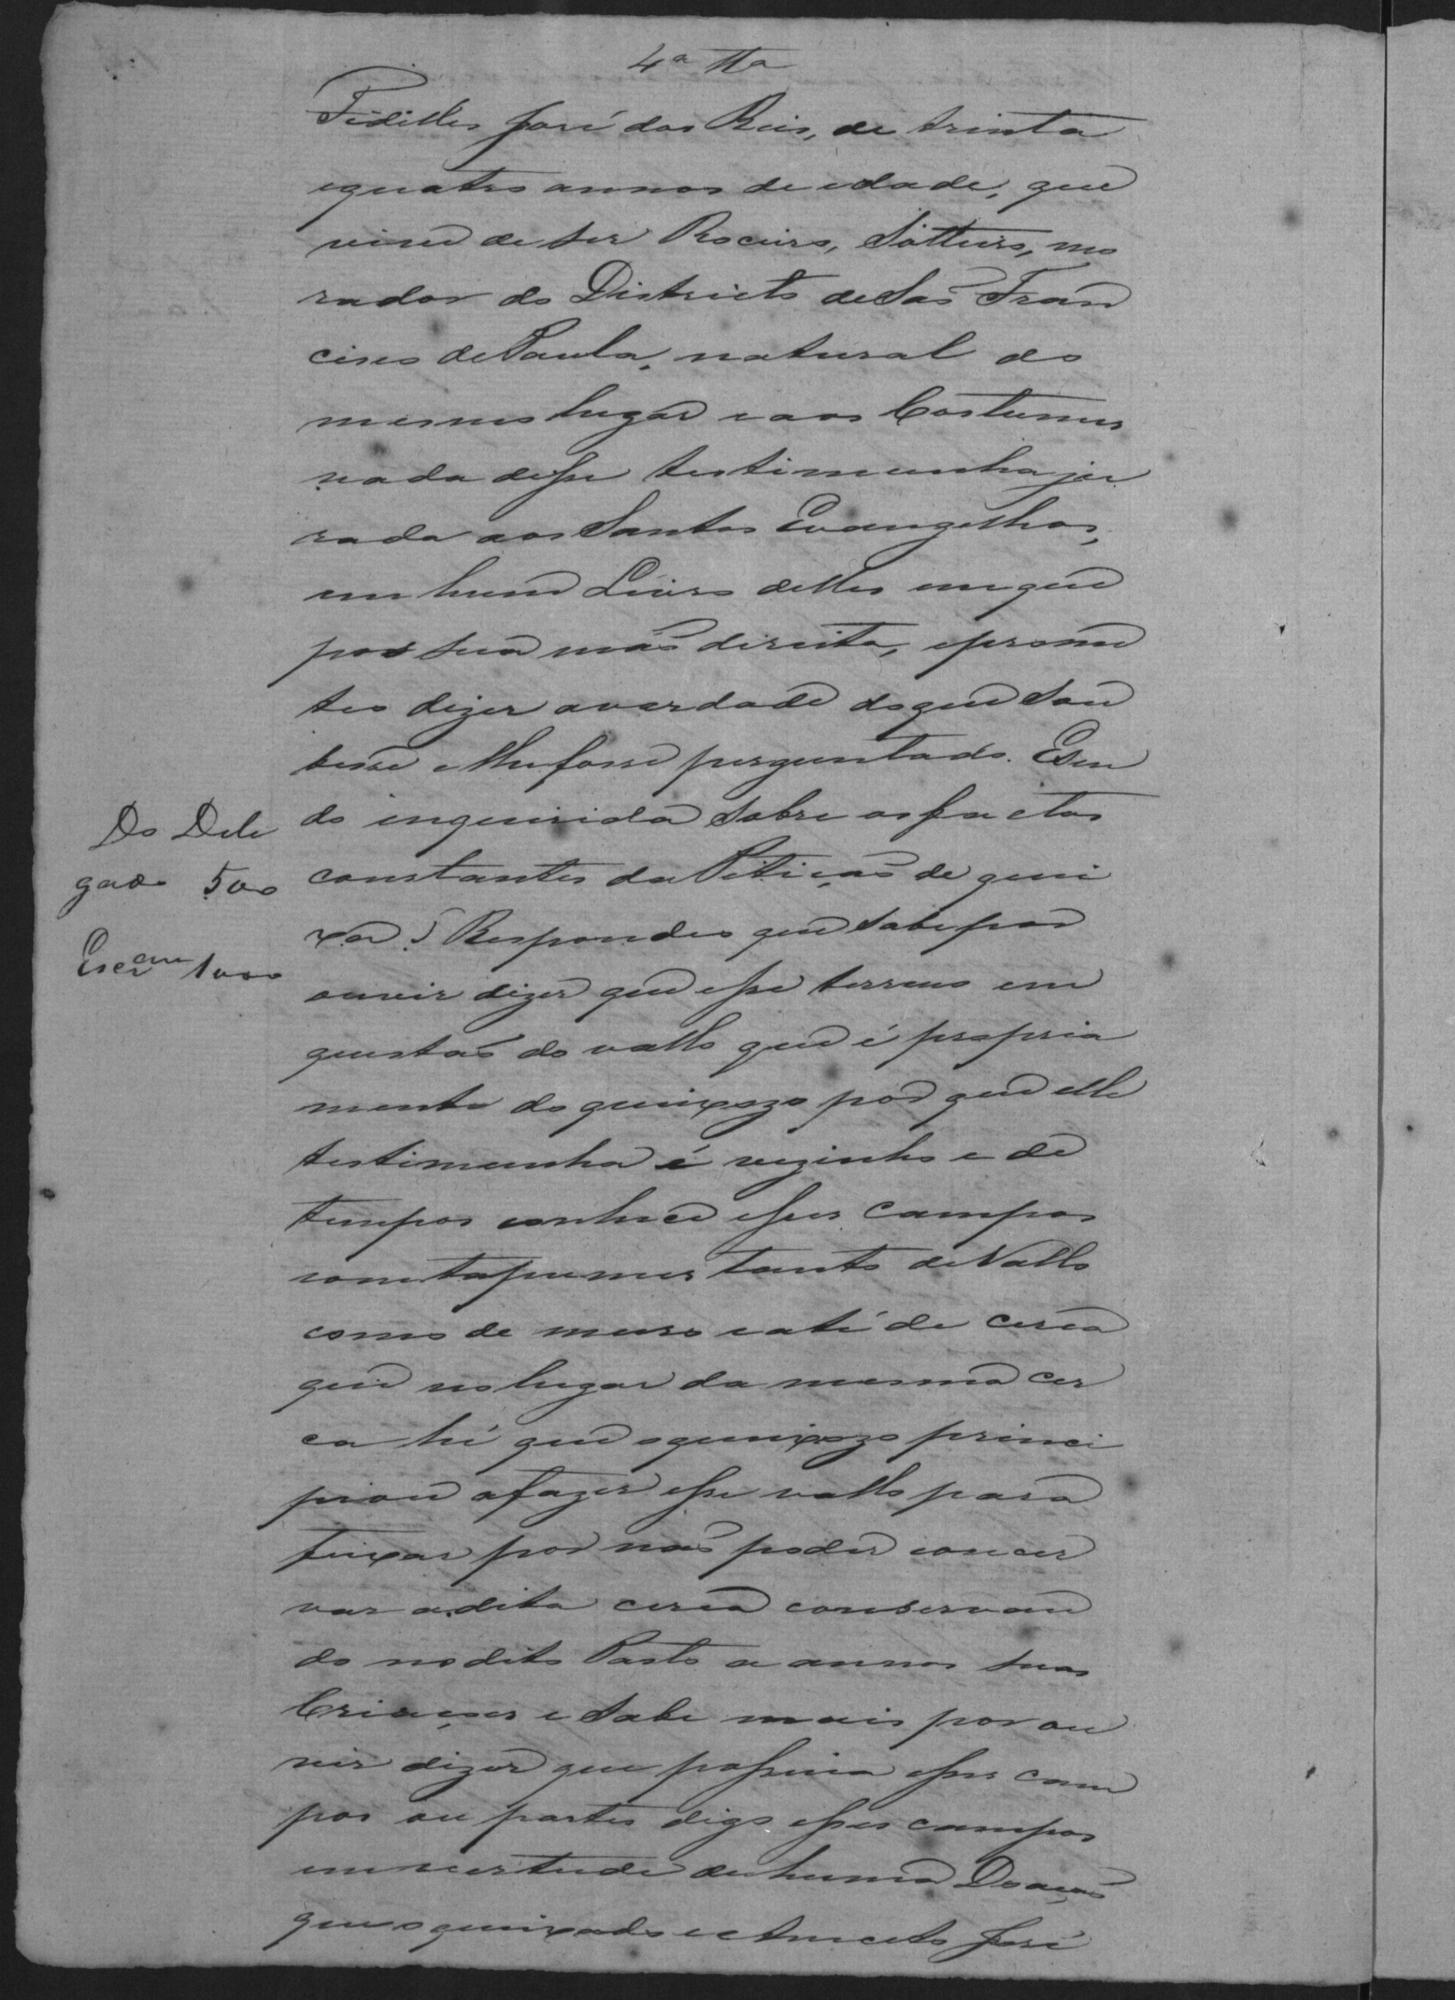 4ª ttª
Fidelles José dos Reis, de trinta
equatro annos de edade, que
vive de ser Roceiro, Solteiro, mo
rador do Districto de São Fran
cisco de Paula, natural do
mesmo lugar e aos Costumes
nada disse testimunha ju
rada aos Santos Evangelhos,
em hum Livro delles em que
pos sua mão direita, eprome
teo dizer averdade do que sou
besse elhe fosse perguntado. Esen
do inquirida sobre osfactos
constantes da Petição de quei
xa? Respondeo que sabe por
ouvir dizer que esse terreno em
questão do vallo que é propria
mente do queixozo por que elle
testimunha é vezinho e de
tempos conhece esses campos
com tapumes tanto de Vallo
como de muro e até de cerca
que no lugar da mesma cer
ca hé que oqueixozo princi
piou afazer esse vallo para
feixar por não poder concer
var adita cerca conservan
do nodito Pasto a annos suas
Criaçoes e Sabe mais por ou
vir dizer que possuia esses cam
pos ou partes digo esses campos
em vertude de huma Doação
que o queixado Anacleto José
Do Dele
gado 500
Escram 1000